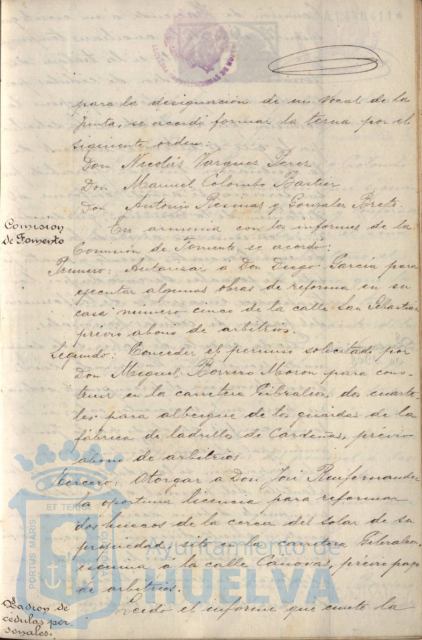 para la designación de un vocal de la
Junta, se acordó formar la terna por el
siguiente orden:
Don Nicolás Vazquez Perez
Don Manuel Colombo
Don Antonio y Gonzalez
Comision
de Fomento
En armonia con los informes de la
Comisión de Fomento se acordó:
Primero: Autorizar a Don Diego García para
ejecutar algunas obras de reforma en su
casa número cinco de la calle San Sebastian
previo abono de arbitrios.
Segundo: Conceder el permiso solicitado por
Don Miguel Borrero Moron para cons-
truir en la carretera Gibraleon dos cuarte-
les para albergue de los guardas de la
fábrica de ladrillos de Cardeñas, previo
abono de arbitrios
Tercero: Otorgar a Don José
la oportuna licencia para reformar
dos huecos de la cerca del solar de su
propiedad, sito a la carretera Gibraleon
esquina á la calle Canovas, previo pago
de arbitrios.
Padron de
cedulas per-
sonales.
el informe que emite la
PORTUS MARIS
ET TERRAE
Ayuntamiento de
HUELVA